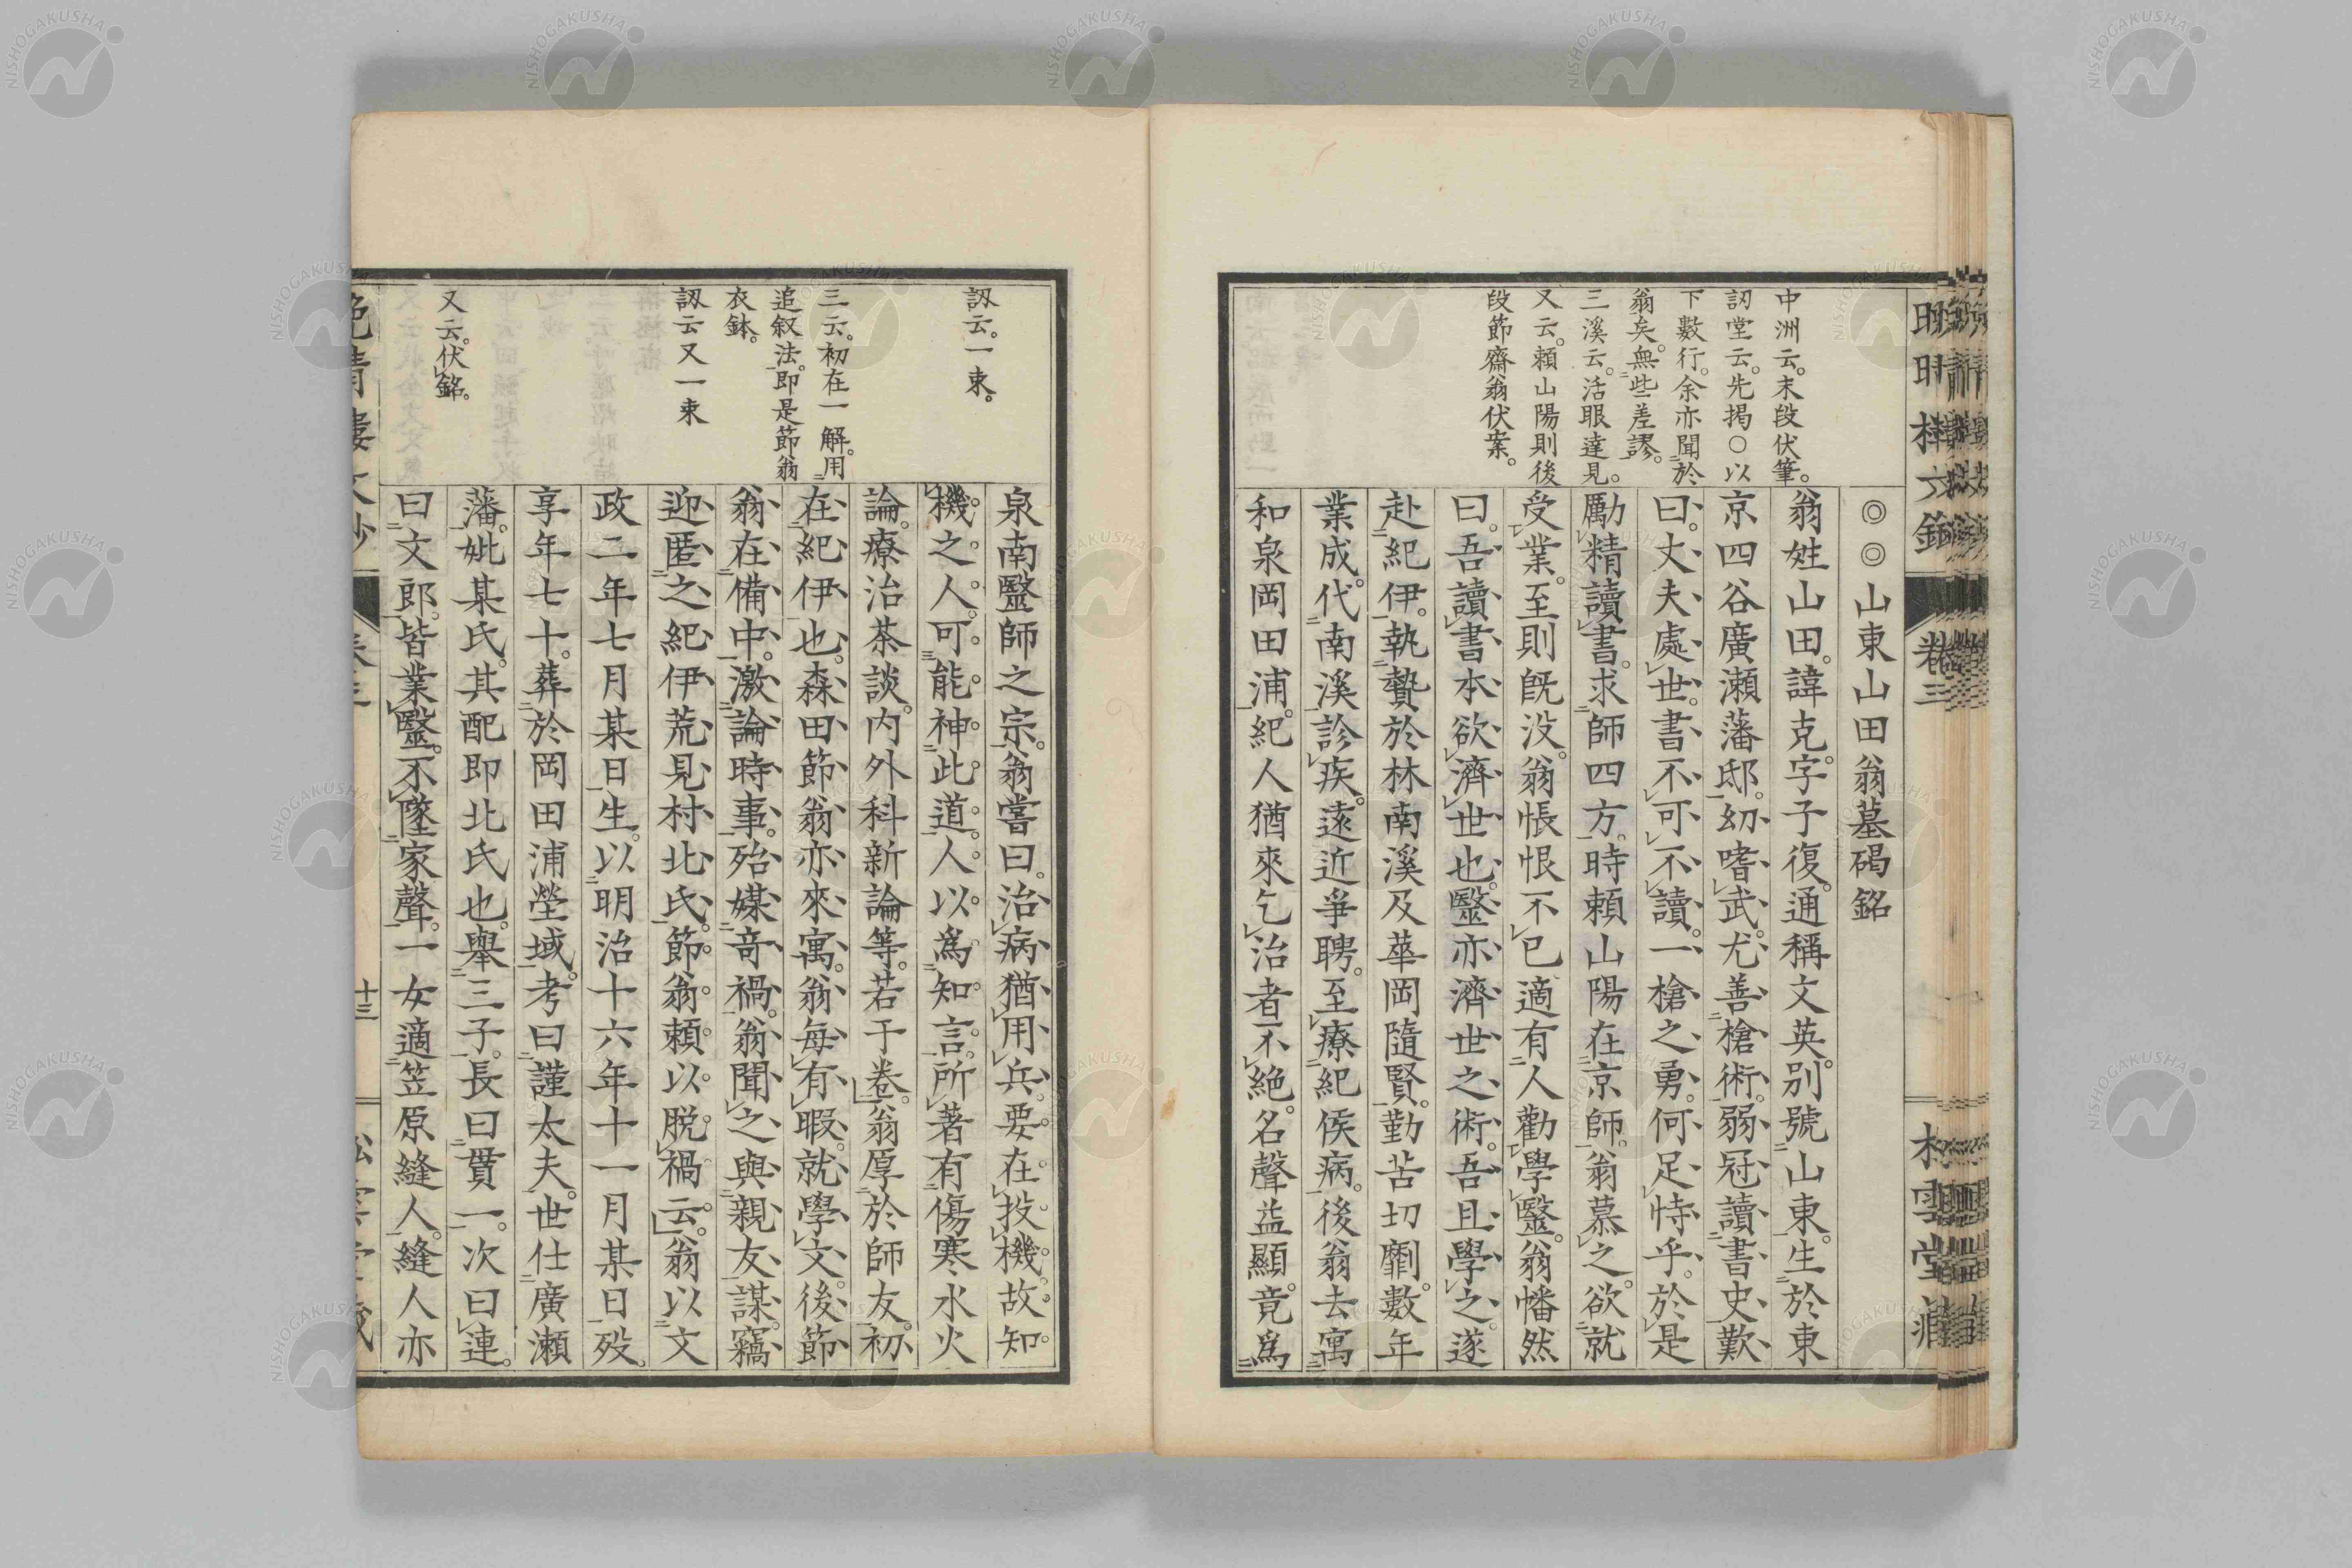 中洲云。末段伏筆。
訒堂云。先揭〇以
下數行。余亦聞於
翁矣。無些差謬。
三溪云。活眼達見。
又云。賴山陽則後
段節齋翁伏案。
◎◎山東山田翁墓碣銘
翁姓山田。諱克。字子復。通稱文英。別號山東。生於東
京四谷廣瀨藩邸。幼嗜武。尤善槍術。弱冠讀書史。歎
曰。丈夫處世。書不可不讀。一槍之勇。何足恃乎。於是
勵精讀書。求師四方。時賴山陽在京師。翁慕之。欲就
受業。至則旣没。翁悵恨不已。適有人勸學醫。翁幡然
曰。吾讀書本欲濟世也。醫亦濟世之術。吾且學之。遂
赴紀伊。執贄於林南溪及華岡隨賢。勤苦切劘。數年
業成。代南溪診疾。遠近爭聘。至療紀侯病。後翁去寓
和泉岡田浦。紀人猶來乞治者不絶。名聲益顯。竟爲
卷三
訒云。一束。
三云。初在一解。用
追叙法。即是節翁
衣鉢。
訒云又一束
又云。伏銘。
泉南醫師之宗。翁嘗曰。治病猶用兵。要在投機。故知
機之人。可能神此道。人以爲知言。所著有傷寒水火
論。療治茶談。内外科新論等。若干卷。翁厚於師友。初
在紀伊也。森田節翁亦來寓。翁每有暇。就學文。後節
翁在備中。激論時事。殆媒奇禍。翁聞之。與親友謀。竊
迎匿之紀伊荒見村北氏。節翁賴以脱禍云。翁以文
政二年七月某日生。以明治十六年十一月某日歿。
享年七十。葬於岡田浦塋域。考曰謹太夫。世仕廣瀨
藩。妣某氏。其配即北氏也。舉三子。長曰貫一。次曰連。
曰文郎。皆業醫。不墜家聲。一女適笠原縫人。縫人亦
十三
NISHOGAKUSHA